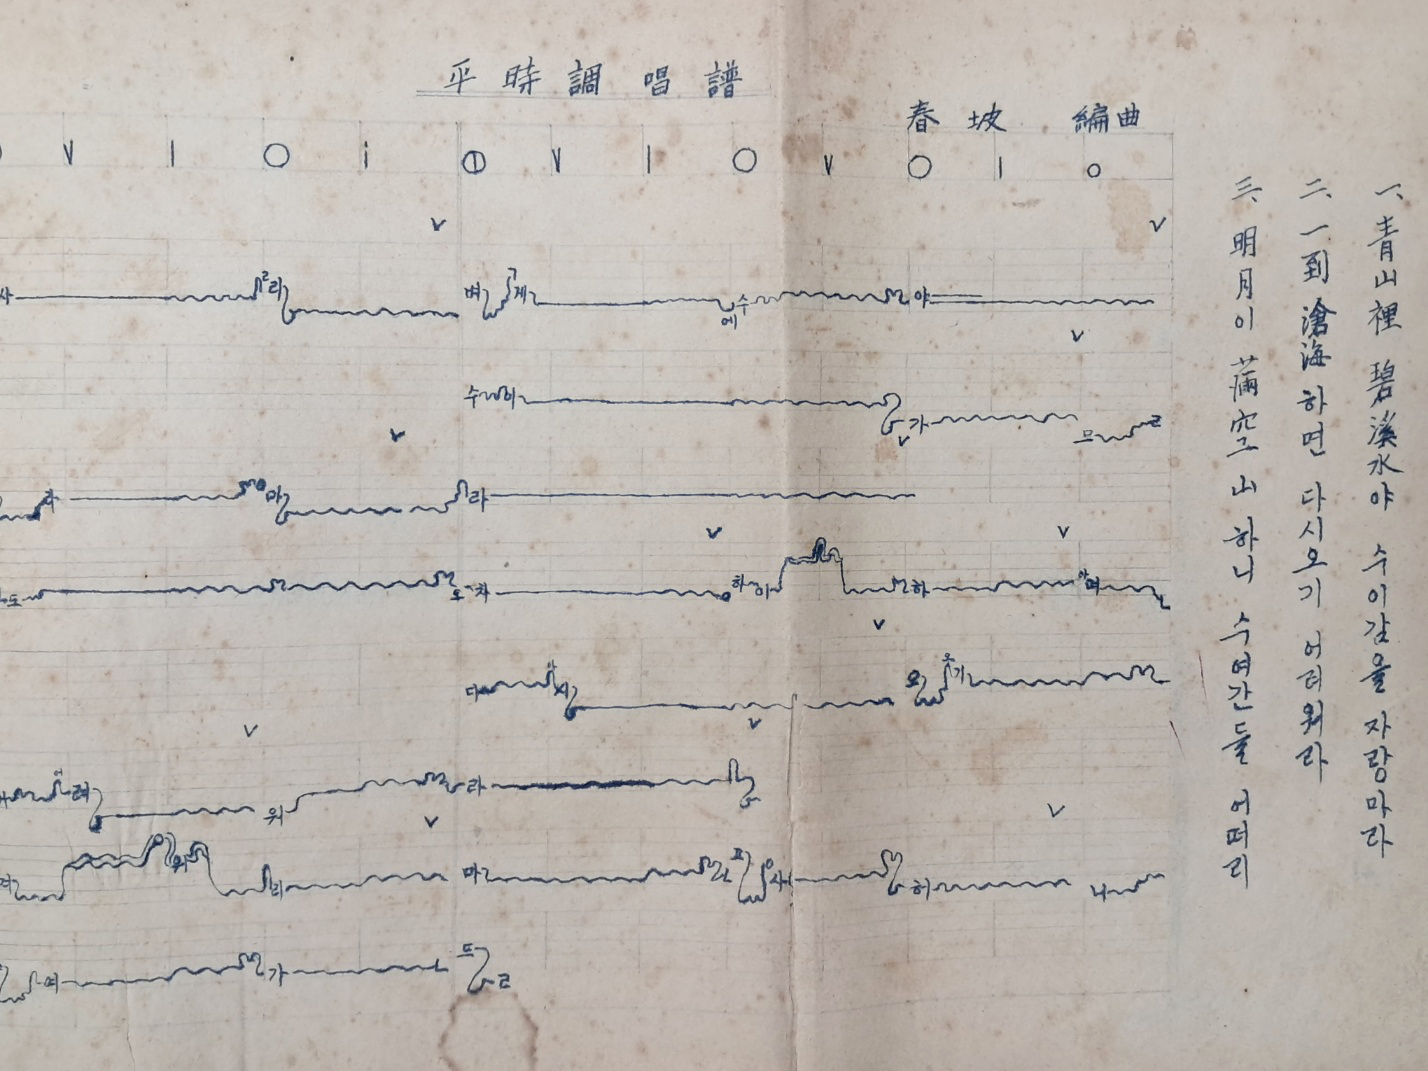 平時調唱譜
春坡 編曲
一、青山裡 碧溪水야 수이감을 자랑마라
二、一到滄海하면 다시오기 어려워라
三、明月이 滿空山하니 수여간들 어떠리
사 리 벼 게 에 수 야
수 이 가 므 ㄹ
자 마 라
도 오 차 하 이 하 며
다 시 오 오 기
려 워 라
리 마 사 허 니
여 가 뜨 ㄹ